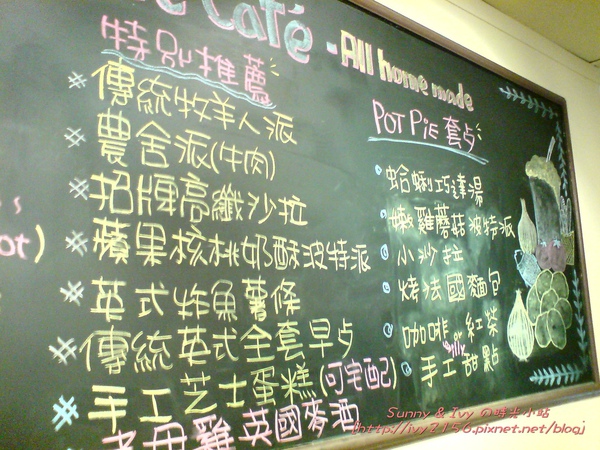 Café - All home made
特別推薦
# 傳統牧羊人派
# 農舍派(牛肉)
# 招牌高纖沙拉
# 蘋果核桃奶酥波特派
# 英式炸魚薯條
# 傳統英式全套早点
# 手工芝士蛋糕(可宅配)
老母雞英國麥酒
POT PiE 套点
蛤蜊巧達湯
嫩雞蘑菇波特派
小沙拉
烤法國麵包
咖啡 or 紅茶
手工甜點
Sunny & Ivy の時光小站
[http://ivy7156.pixnet.net/blog]